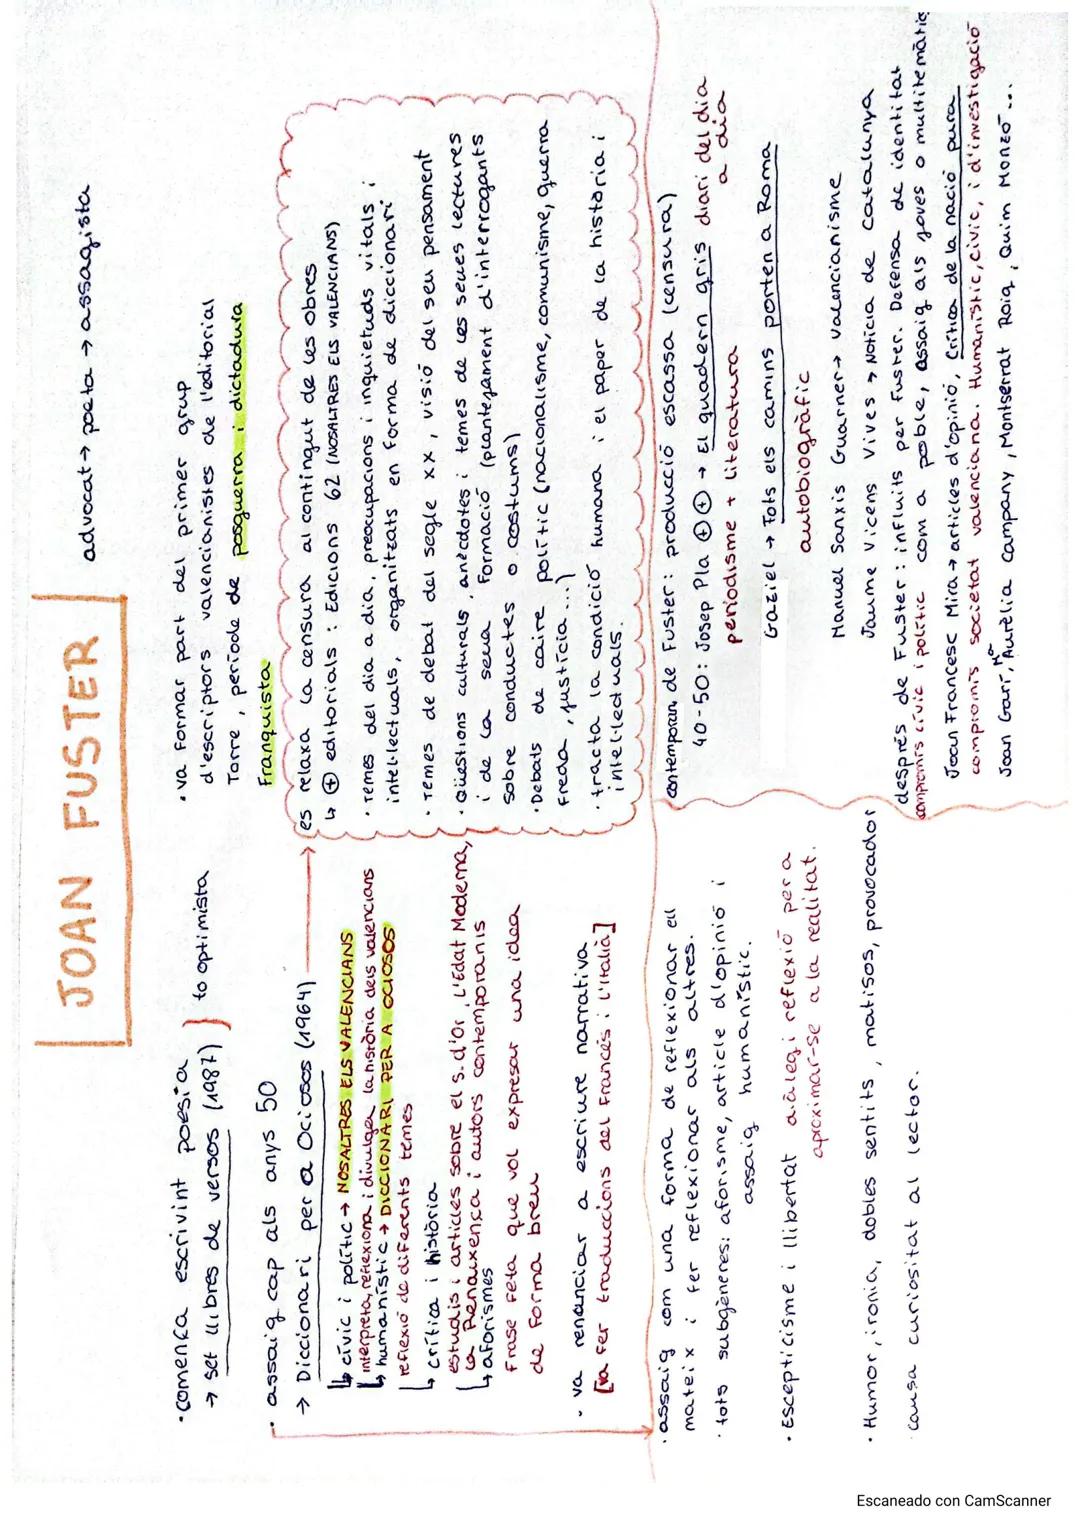 JOAN FUSTER
advocat → poeta → assagista
· comença escrivint poesia
→ set llibres de versos (1987) } to optimista
· va formar part del primer grup
d'escriptors valencianistes de l'editorial
Torre, període de posguerra i dictadura
Franquista
· assaig cap als anys 50
→ Diccionari per a Ociosos (1964) →
↳ cívic i polític → NOSALTRES ELS VALENCIANS
interpreta, reflexiona i divulga la història dels valencians
↳ humanístic → DICCIONARI PER A OCIOSOS
reflexió de diferents temes
↳ crítica i història
estudis i articles sobre el s. d'Or, L'Edat Moderna,
La Renaixença i autors contemporanis
↳ aforismes
Frase feta que vol expresar una idea
de forma breu
· va renunciar a escriure narrativa
[va fer traduccions del Francés i l'Italià]
es relaxa la censura al contingut de les obres
↳ ⊕ editorials : Edicions 62 (NOSALTRES ELS VALENCIANS)
· Temes del dia a dia, preocupacions i inquietuds vitals i
intel·lectuals, organitzats en forma de diccionari
· Temes de debat del segle XX, visió del seu pensament
· Qüestions culturals, anècdotes i temes de les seues lectures
i de la seua formació (plantejament d'interrogants
sobre conductes o costums)
· Debats de caire polític (nacionalisme, comunisme, guerra
freda, justícia...)
· tracta la condició humana i el paper de la història i
intel·lectuals.
· assaig com una forma de reflexionar ell
mateix i fer reflexionar als altres.
· tots subgèneres: aforisme, article d'opinió i
assaig humanístic.
· Escepticisme i llibertat a.àleg i reflexió per a
aproximar-se a la realitat.
· Humor, ironia, dobles sentits, matisos, provocador
· causa curiositat al lector.
contemporanis de Fuster: producció escassa (censura)
40-50: Josep Pla ⊕⊕ → El quadern gris diari del dia
a dia
periodisme + literatura
Gaziel → Tots els camins porten a Roma
autobiogràfic
Manuel Sanxis Guarner → valencianisme
Jaume Vicens Vives → Notícia de Catalunya
després de Fuster: influïts per Fuster. Defensa de identitat
compromís cívic i polític com a poble, assaig als joves o multitemàtic
Joan Francesc Mira → articles d'opinió, Crítica de la nació pura
compromís societat valenciana. Humanístic, cívic, i d'investigació
Joan Garí, Mª Aurèlia Campany, Montserrat Roig, Quim Monzó...
Escaneado con CamScanner